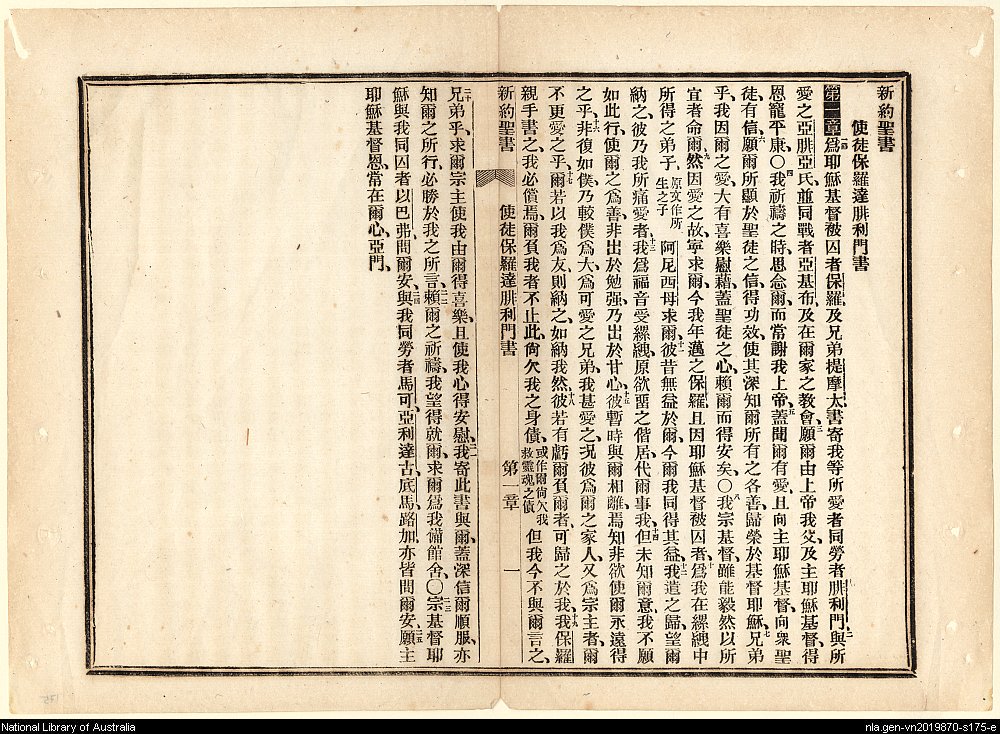 新約聖書
使徒保羅達腓利門書
第一章 一 爲耶穌基督被囚者保羅及兄弟提摩太書寄我等所愛者同勞者腓利門與所 二
愛之亞腓亞氏並同戰者亞基布及在爾家之教會 三 願爾由上帝我父及主耶穌基督得
恩寵平康〇 四 我祈禱之時思念爾而常謝我上帝 五 蓋聞爾有愛且向主耶穌基督向衆聖
徒有信 六 願爾所顯於聖徒之信得功效使其深知爾所有之各善歸榮於基督耶穌 七 兄弟
乎我因爾之愛大有喜樂慰藉蓋聖徒之心賴爾而得安矣〇 八 我宗基督雖能毅然以所
宜者命爾 九 然因愛之故寧求爾今我年邁之保羅且因耶穌基督被囚者 十 爲我在縲絏中
所得之弟子 原文作所生之子 阿尼西母求爾 十一 彼昔無益於爾今爾我同得其益 十二 我遣之歸望爾
納之彼乃我所痛愛者 十三 我爲福音受縲絏原欲留之偕居代爾事我 十四 但未知爾意我不願
如此行使爾之爲善非出於勉强乃出於甘心 十五 彼暫時與爾相離焉知非欲使爾永遠得
之乎 十六 非復如僕乃較僕爲大爲可愛之兄弟我甚愛之況彼爲爾之家人又爲宗主者爾
不更愛之乎 十七 爾若以我爲友則納之如納我然 十八 彼若有虧爾負爾者可歸之於我 十九 我保羅
親手書之我必償焉爾負我者不止此尙欠我之身債 或作爾尙欠我救靈魂之債 但我今不與爾言之
新約聖書 使徒保羅達腓利門書 第一章 一
二十 兄弟乎求爾宗主使我由爾得喜樂且使我心得安慰 二一 我寄此書與爾蓋深信爾順服亦
知爾之所行必勝於我之所言 二二 賴爾之祈禱我望得就爾求爾爲我備館舍〇 二三 宗基督耶
穌與我同囚者以巴弗問爾安 二四 與我同勞者馬可亞利達古底馬路加亦皆問爾安 二五 願主
耶穌基督恩常在爾心亞門
National Library of Australia
nla.gen-vn2019870-s175-e